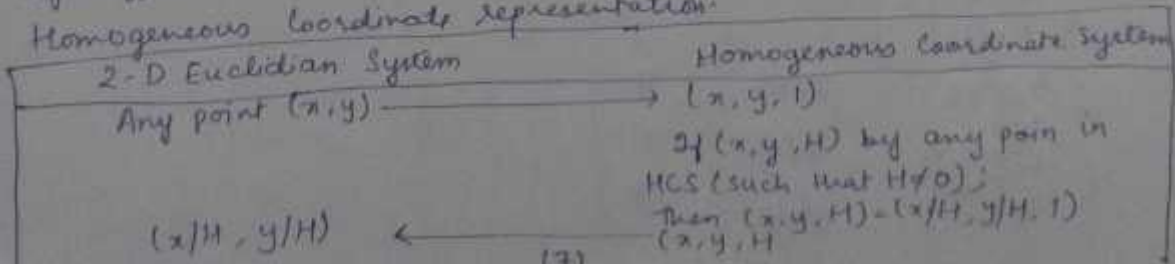 Homogeneous Coordinate representation.
2-D Euclidian System Homogeneous Coordinate System
Any point (x,y) → (x, y, 1)
If (x, y, H) by any poin in
HCS (such that H≠0);
Then (x, y, H) = (x/H, y/H, 1)
(x/H, y/H) ← (x, y, H
(7)